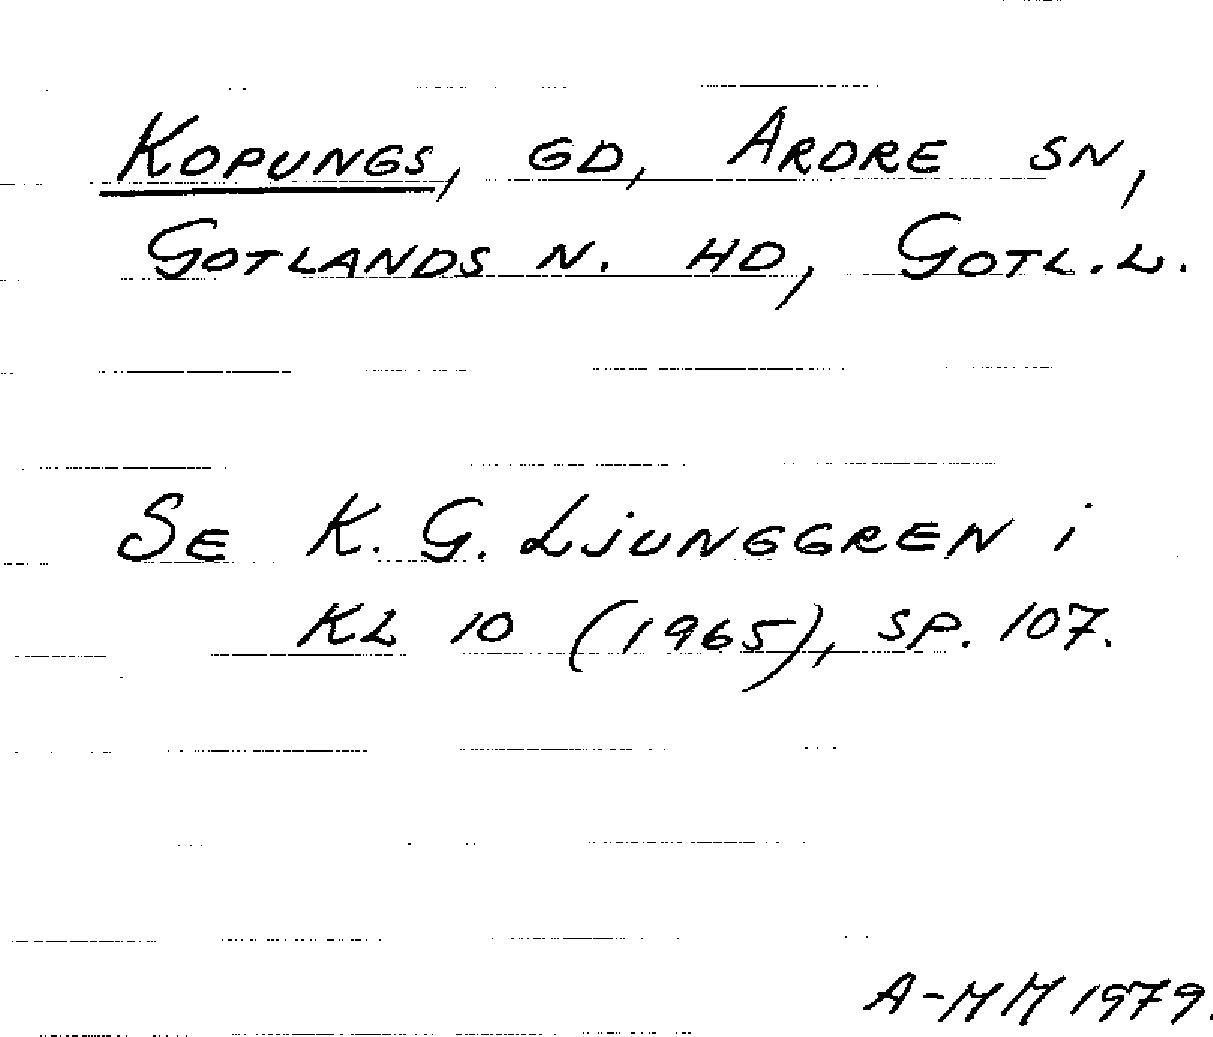 KOPUNGS, GD, ARDRE SN,
GOTLANDS N. HD, GOTL. L.
SE K. G. LJUNGGREN i
KL 10 (1965), SP. 107.
A-MM 1979.